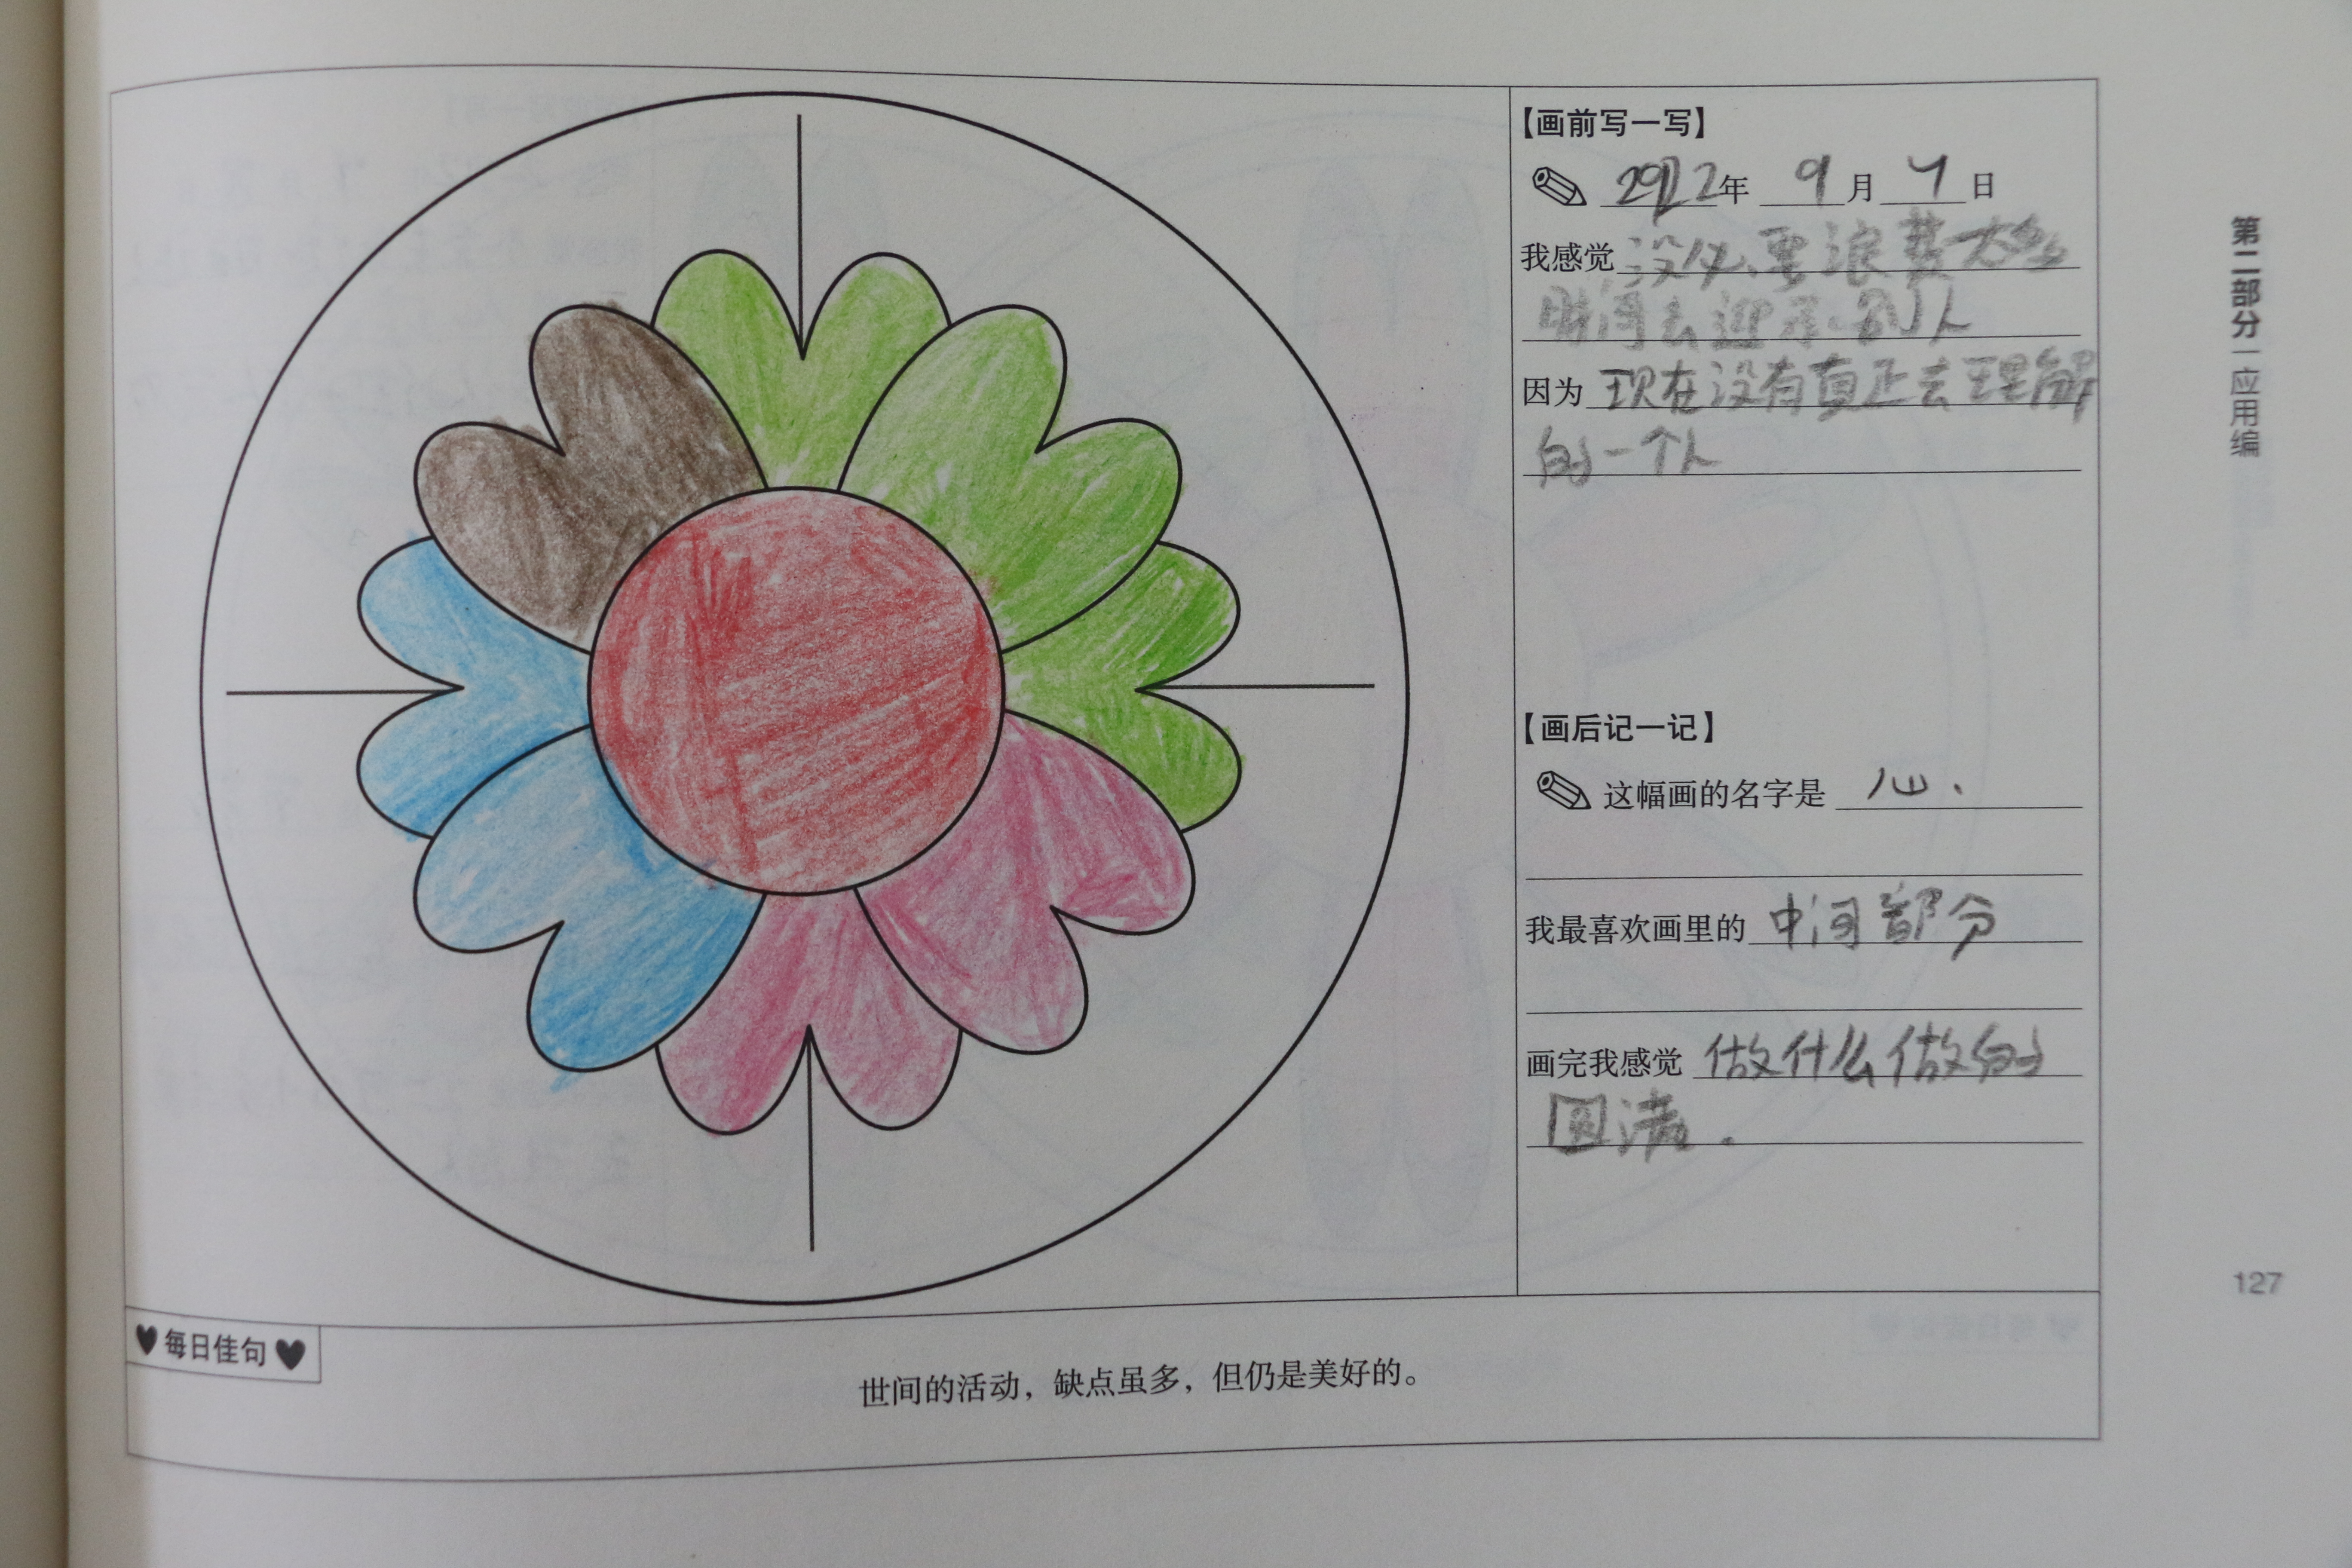 【画前写一写】
2022年 9月 7日
我感觉 没必要浪费太多
时间去迎示别人
因为 现在没有真正去理解
的一个人
【画后记一记】
这幅画的名字是 心.
我最喜欢画里的 中间部分
画完我感觉 做什么做的
圆满.
每日佳句
世间的活动，缺点虽多，但仍是美好的。
第二部分 | 应用编
127